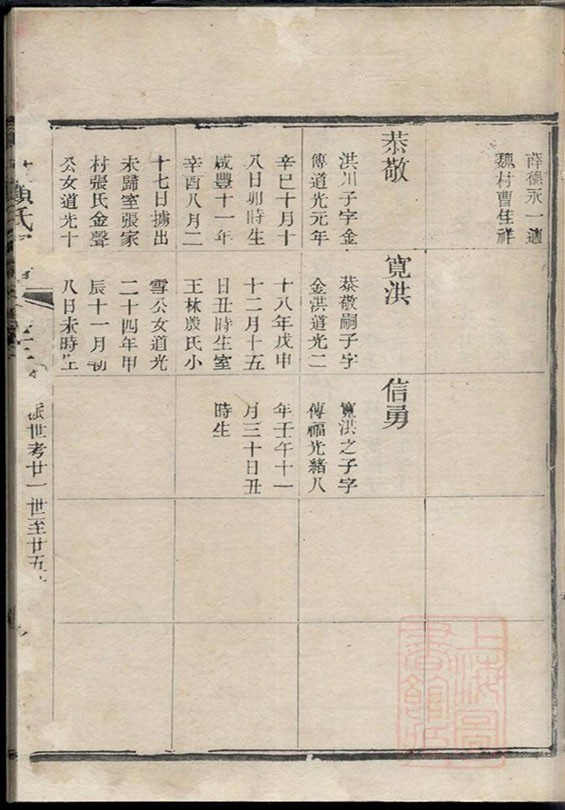 薛德永一適
魏村曹佳祥
恭敬
洪川子字金
傳道光元年
辛巳十月十
八日卯時生
咸豐十一年
辛酉八月二
十七日擄出
未歸室張家
村張氏金聲
公女道光十
寬洪
恭敬嗣子字
金洪道光二
十八年戊申
十二月十五
日丑時生室
王林殷氏小
雪公女道光
二十四年甲
辰十一月初
八日未時生
信勇
寬洪之子字
傳福光緒八
年壬午十一
月三十日丑
時生
顧氏
世考廿一世至廿五
上海圖
書館藏